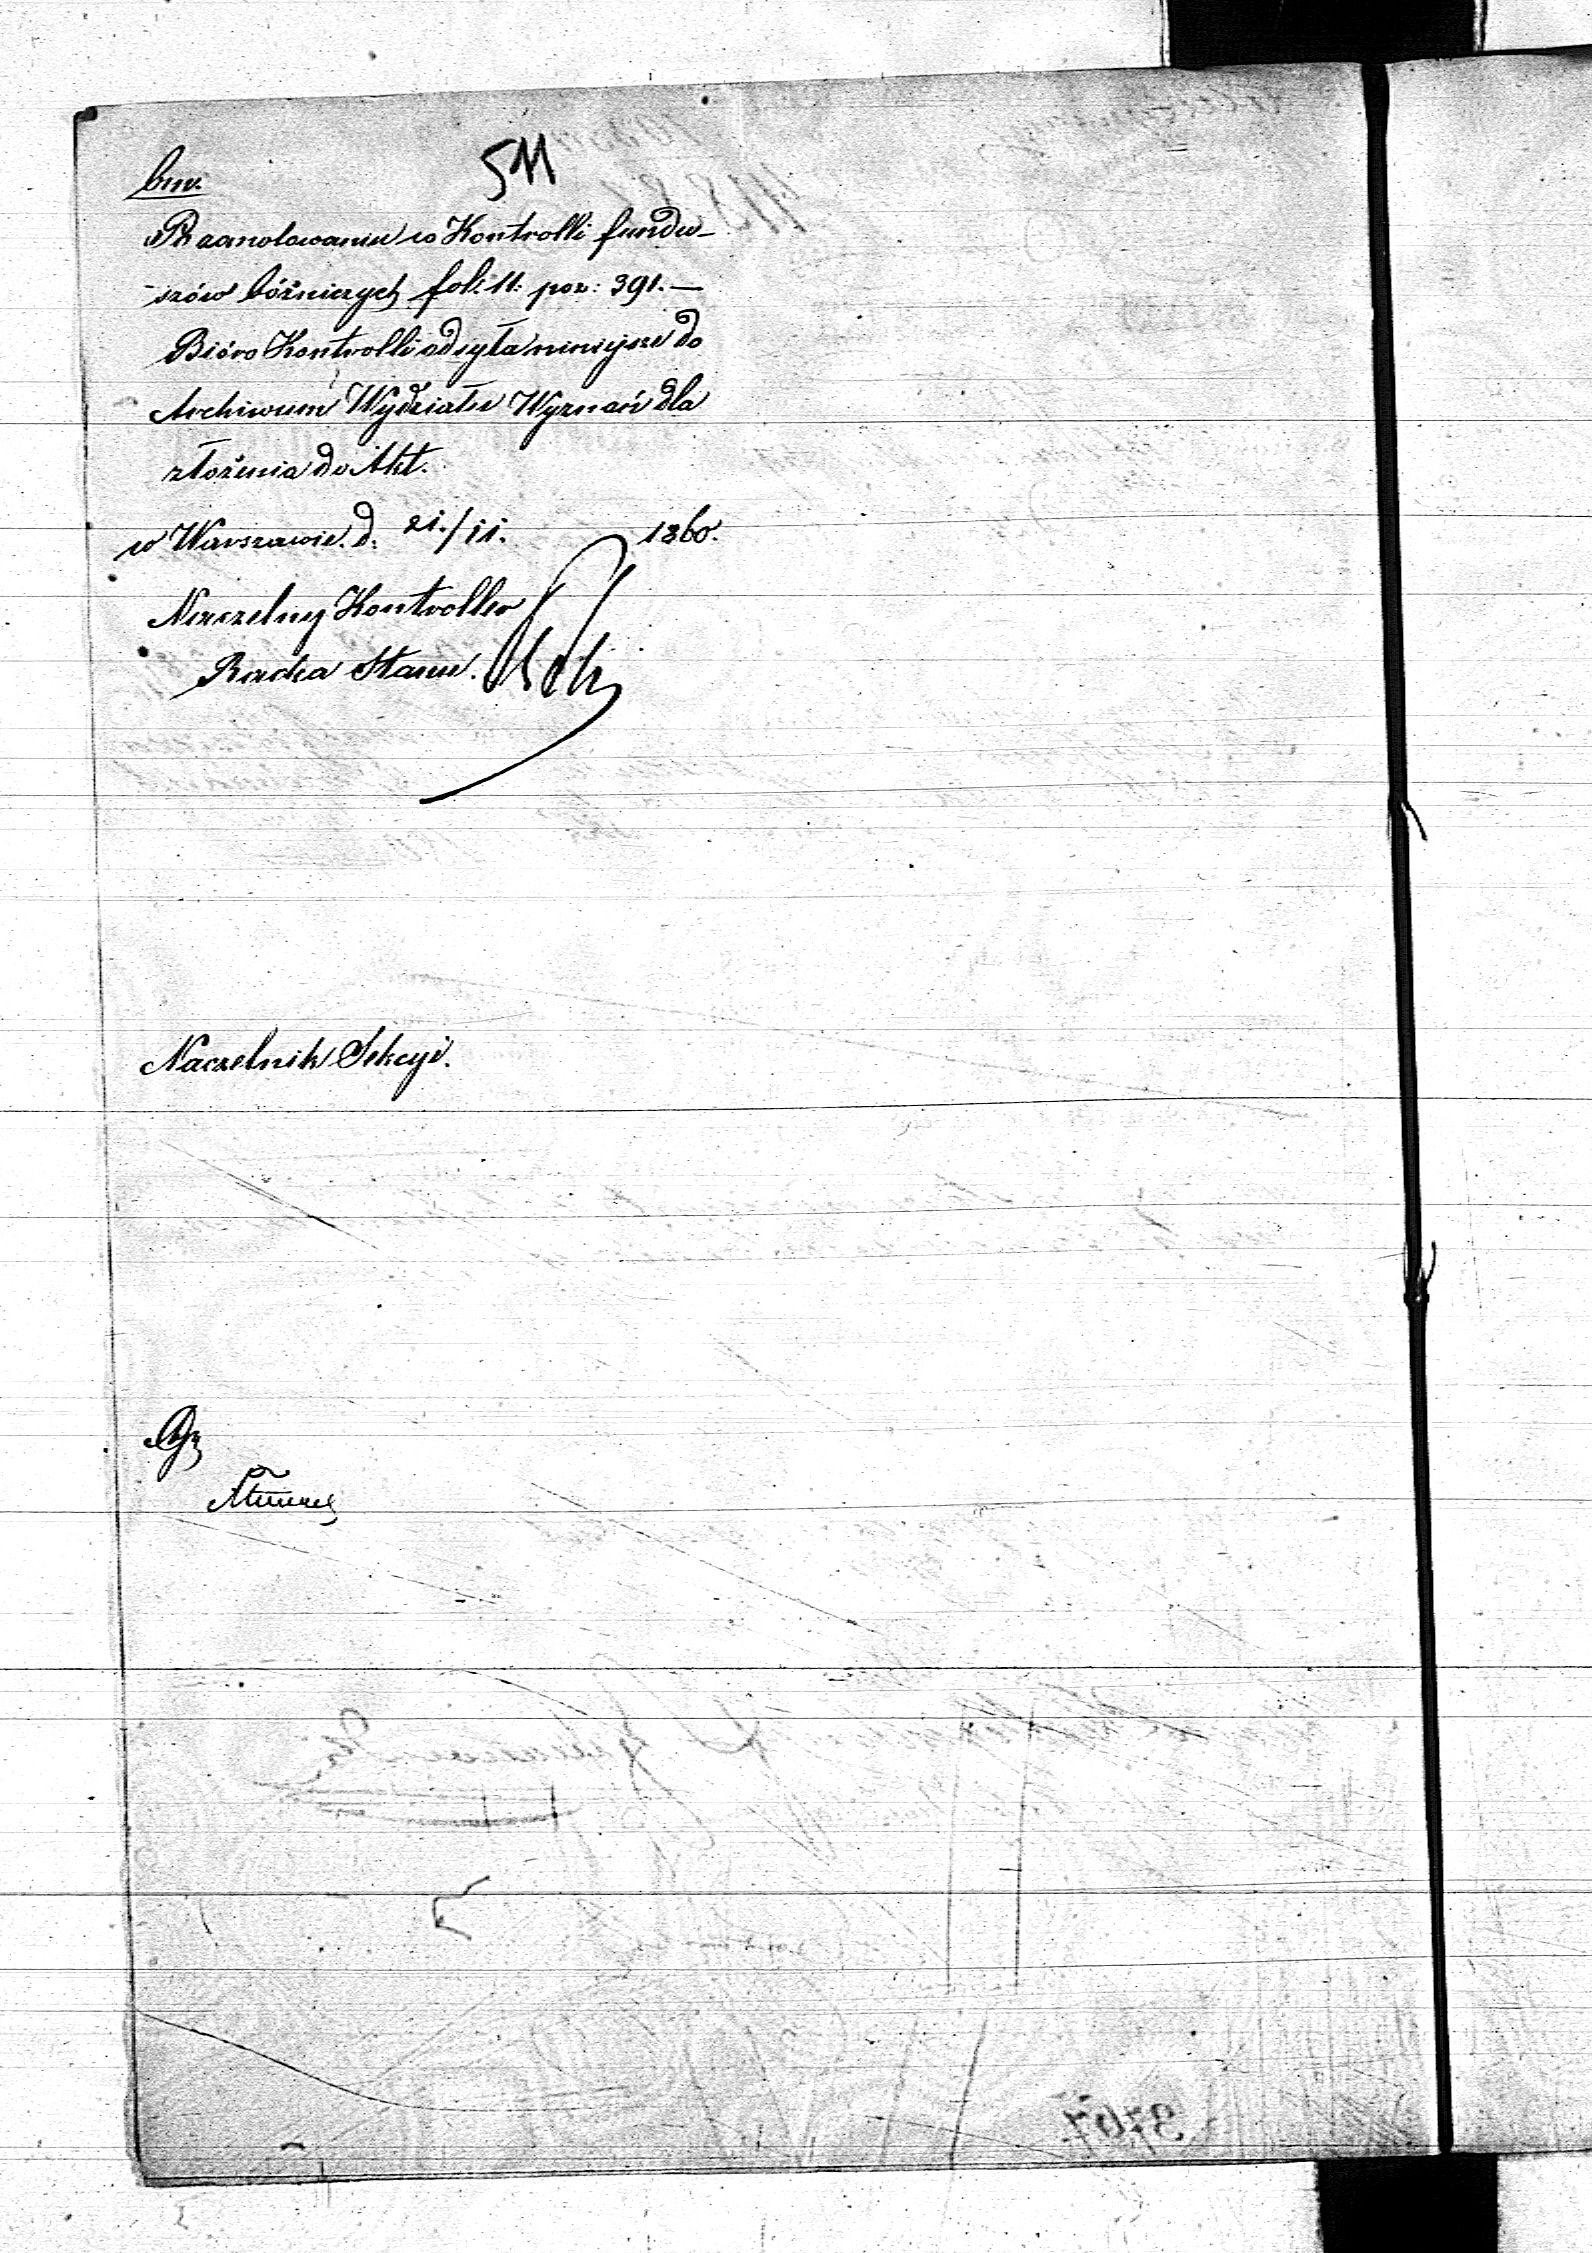 511
bm.
Po zanotowaniu w Kontrolli fundu-
szów bóżniczych fol: 11. poz: 391.—
Bióro Kontrolli odsyła niniejsze do
Archiwum Wydziału Wyznań dla
złożenia do Akt.
w Warszawie d. 21./11. 1860.
Naczelny Kontroller
Radca Stanu.
Naczelnik Sekcyi.